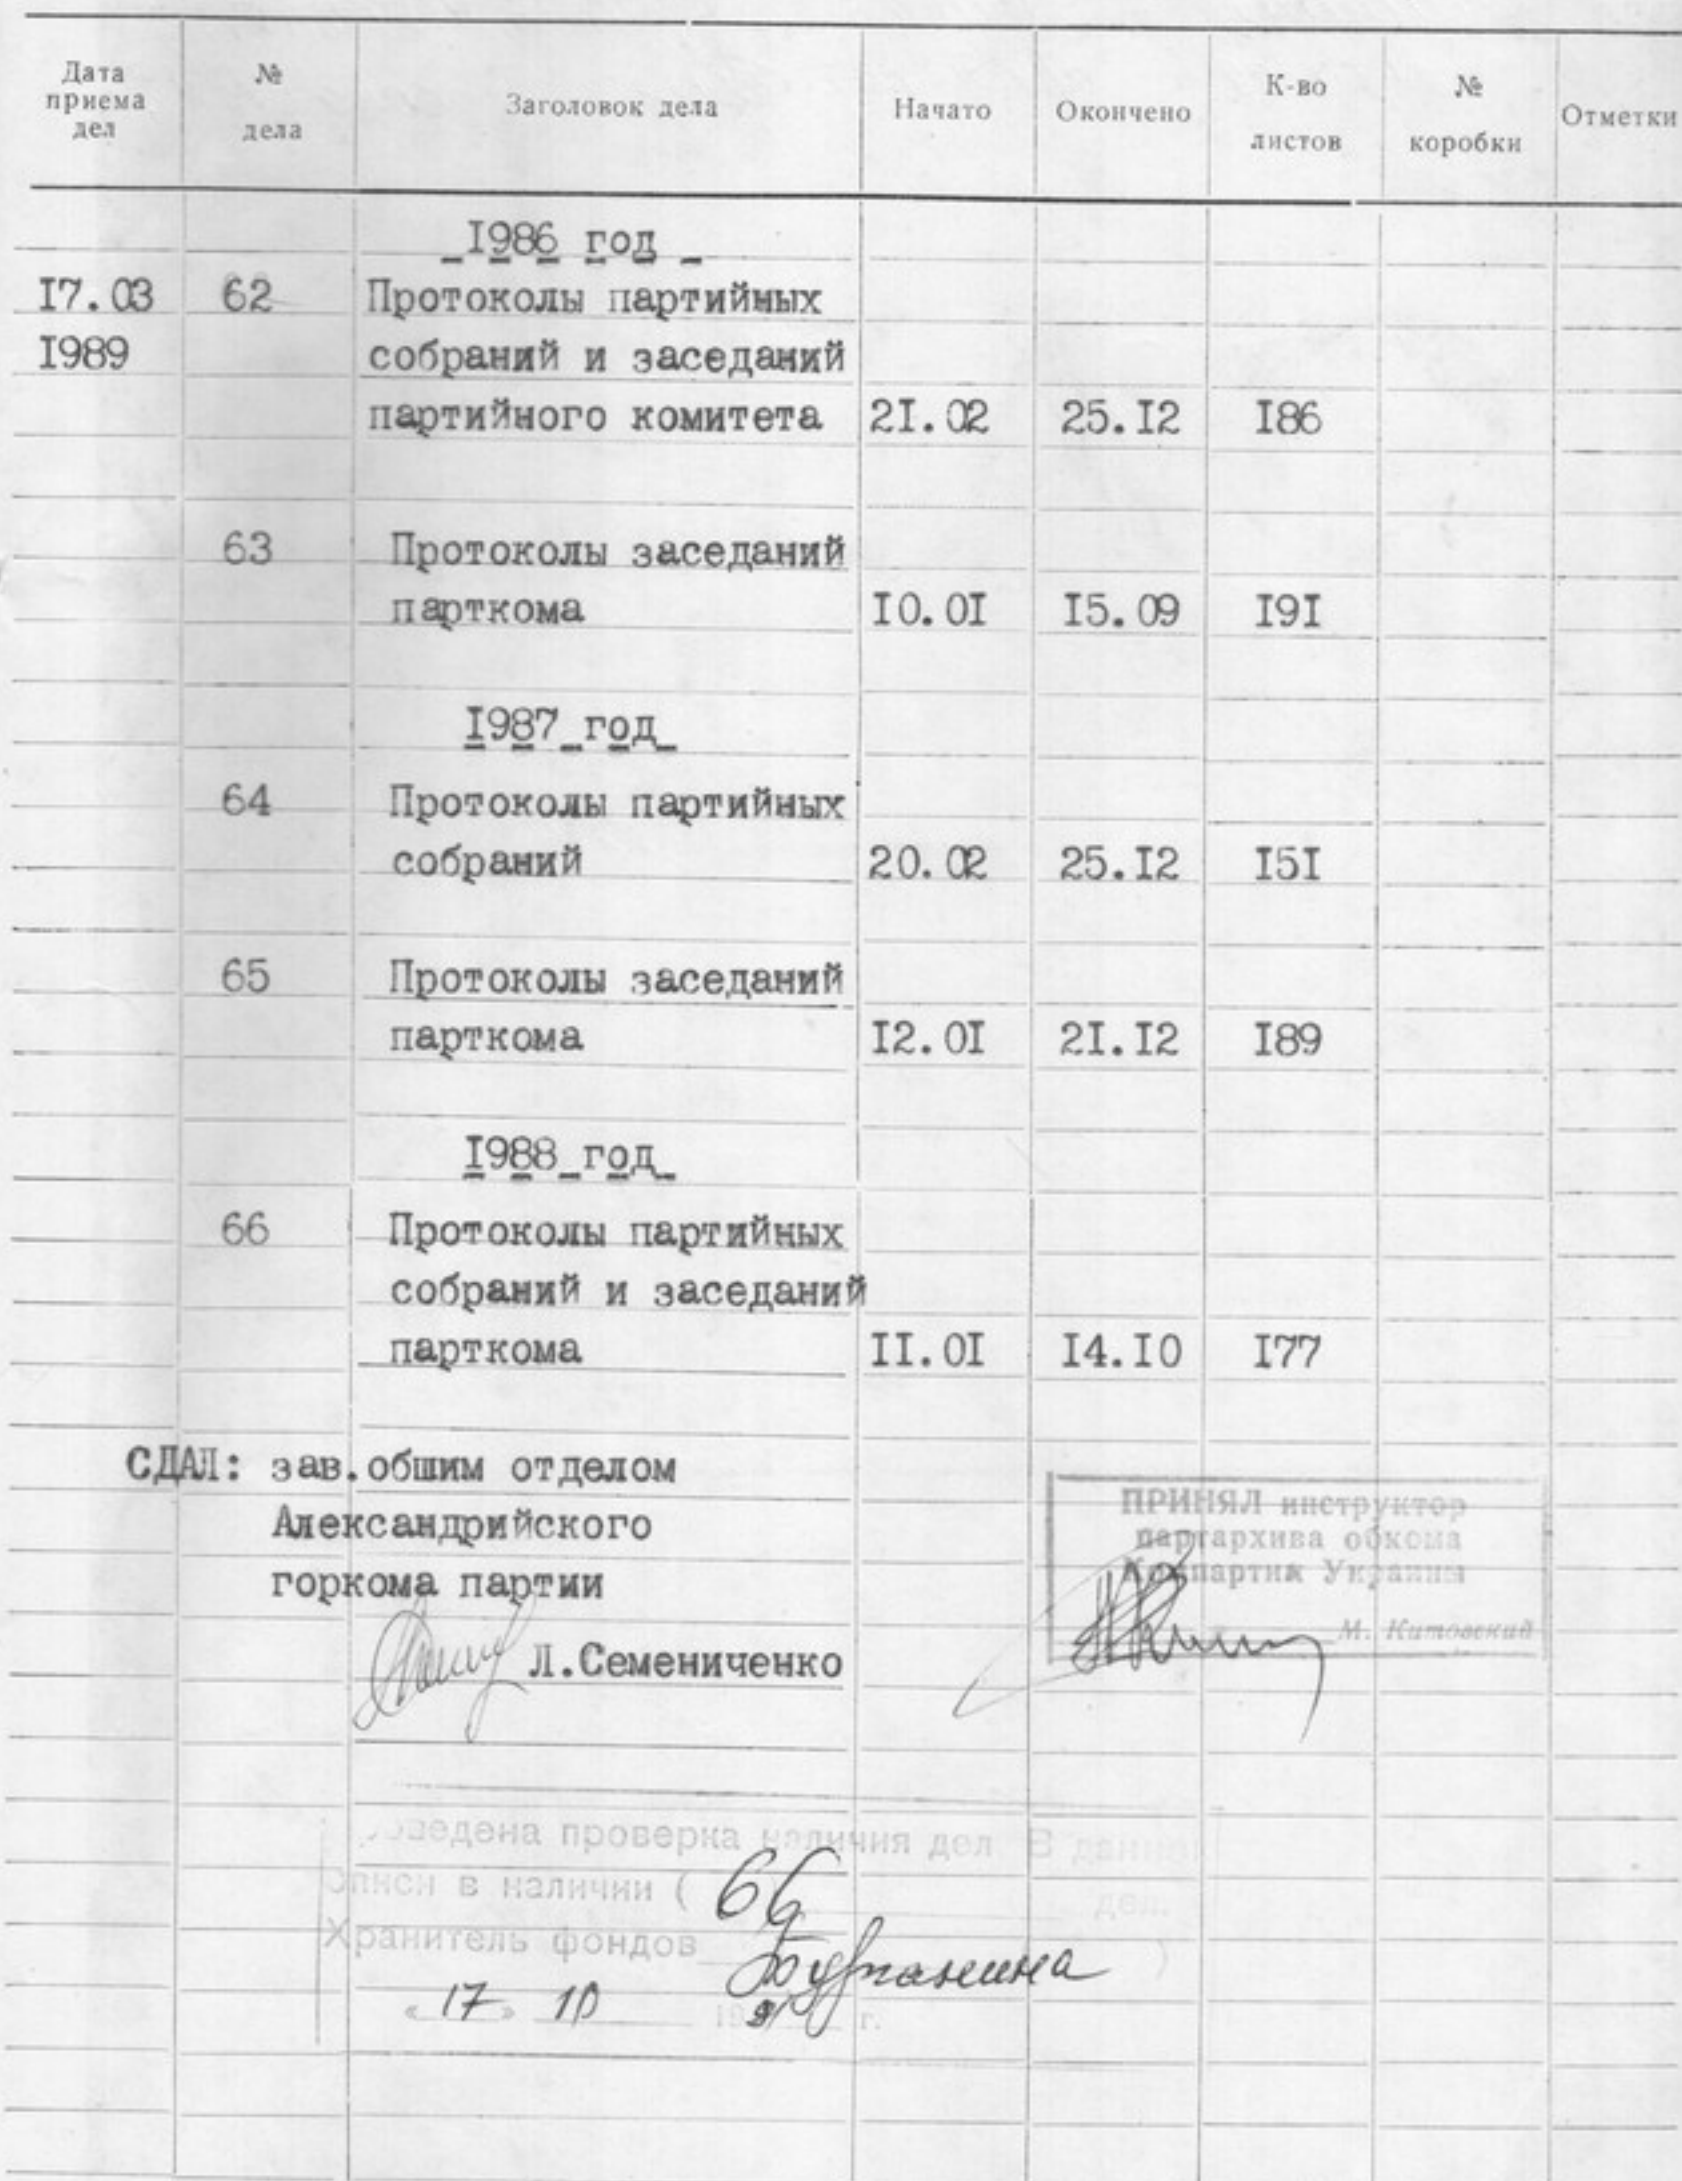 Дата приема дел № дела Заголовок дела Начато Окончено К-во листов № коробки Отметки
I986 год
I7.03 62 Протоколы партийных
I989 собраний и заседаний
партийного комитета 2I.02 25.I2 I86
63 Протоколы заседаний
парткома I0.0I I5.09 I9I
I987 год
64 Протоколы партийных
собраний 20.02 25.I2 I5I
65 Протоколы заседаний
парткома I2.0I 2I.I2 I89
I988 год
66 Протоколы партийных
собраний и заседаний
парткома II.0I I4.I0 I77
СДАЛ: зав.обшим отделом
Александрийского
горкома партии
Л.Семениченко
ПРИНЯЛ инструктор
партархива обкома
Компартии Украины
М. Китовский
проверка наличия дел. В данной
описи в наличии ( 66 дел.
Хранитель фондов )
« 17 » 10 19 г.